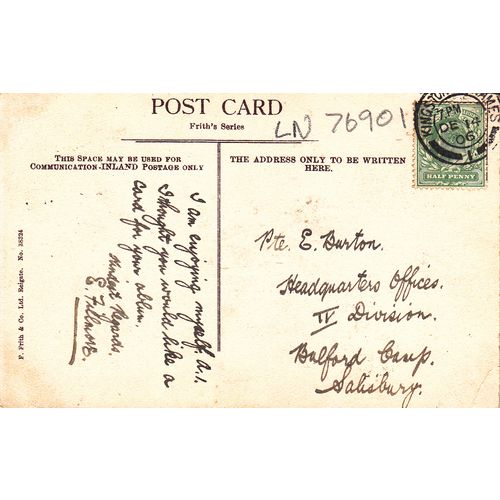 POST CARD
Frith's Series
LN 76901
THIS SPACE MAY BE USED FOR
COMMUNICATION-INLAND POSTAGE ONLY
THE ADDRESS ONLY TO BE WRITTEN
HERE.
I am enjoying myself. A.1.
I thought you would like a
card for your album.
Kindest Regards.
E. Fillmore.
Pte E. Burton.
Headquarters Offices.
IV Division.
Bulford Camp.
Salisbury.
F. Frith & Co. Ltd. Reigate. No. 38324
7PM
DE
06
HALF PENNY